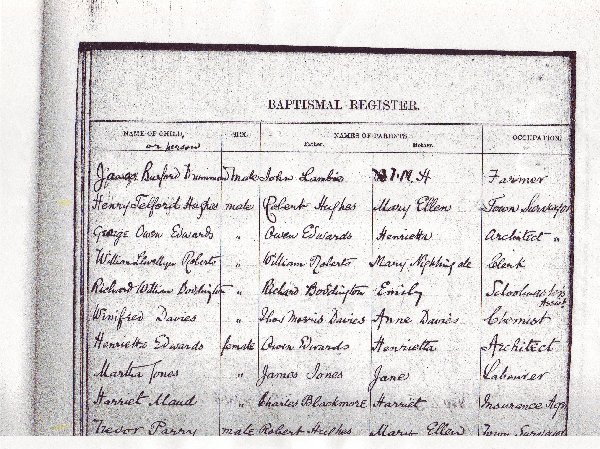 BAPTISMAL REGISTER.
NAME OF CHILD, SEX. NAMES OF PARENTS. OCCUPATION.
or person Father. Mother.
Burford Drummond male John Lambie H Farmer
Henry Telford Hughes male Robert Hughes Mary Ellen Town Surveyor
George Owen Edwards " Owen Edwards Henrietta Architect "
William Llewellyn Roberts " William Roberts Mary Nightingale Clerk
Richard William Boddington " Richard Boddington Emily
Winifred Davies " Thos Morris Davies Anne Davies Chemist
Henrietta Edwards female Owen Edwards Henrietta Architect
Martha Jones " James Jones Jane Labourer
Harriet Maud " Charles Blackmore Harriet Insurance Agn
Trevor Parry male Robert Hughes Mary Ellen Town Surveyor